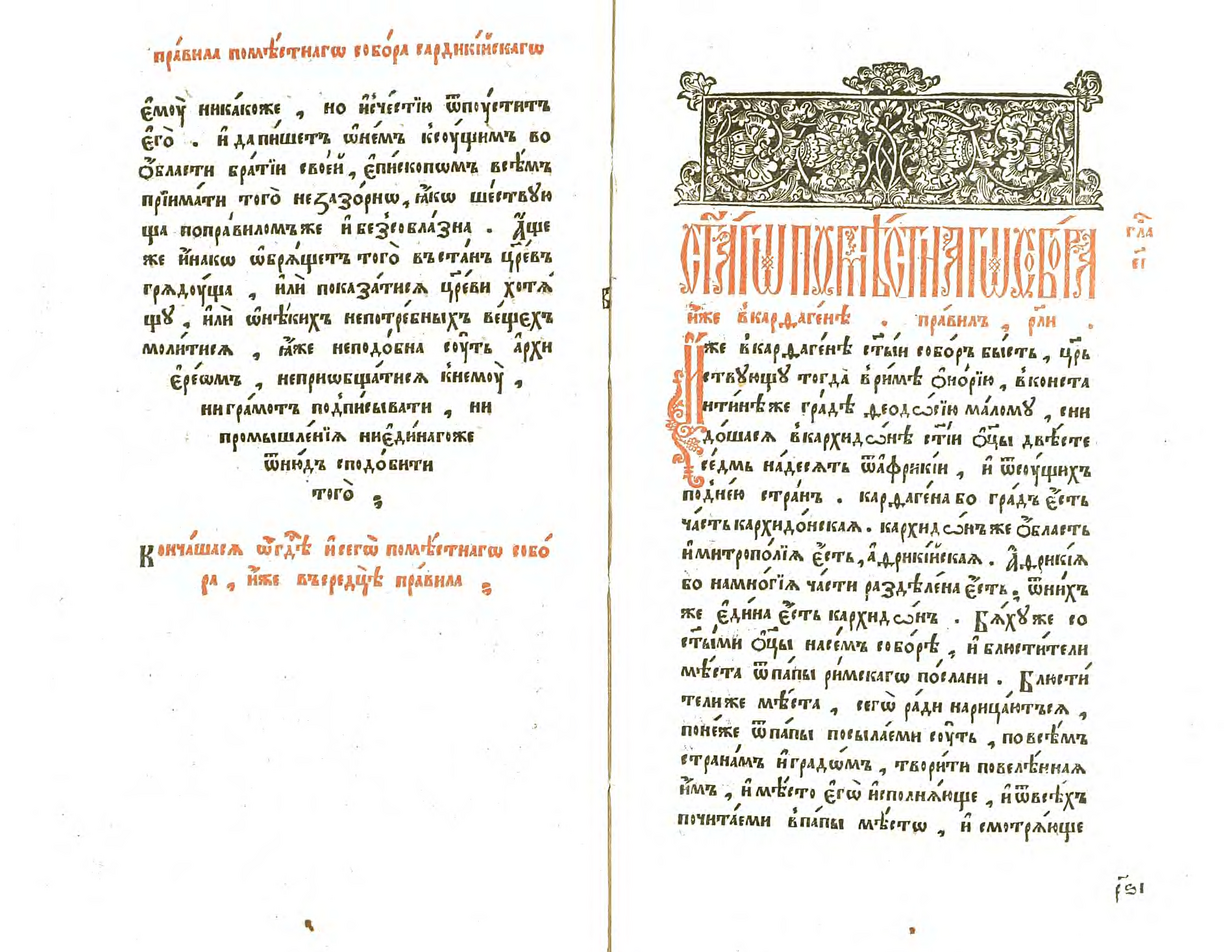 пра́вила помѣ́стнагѡ собо́ра сардикі́йскагѡ
є҆моу̀ никако́же , но и҆сче́стїю ѿпоу́ститъ
є҆го̀ . и҆ да пи́шетъ ѡ҆не́мъ ксоу́щимъ во
ѻ҆́бласти бра́тїи свое́й , є҆пи́скопѡмъ всѣ́мъ
прїима́ти того̀ незазо́рнѡ , ꙗ҆́кѡ ше́ствꙋю
ща попра́виломъже и҆ безсобла́зна . А҆́ще
же и҆́накѡ ѡ҆брѧ́щетъ того̀ въста́нъ цр҃е́въ
грѧдоу́ща , и҆лѝ показа́тисѧ цр҃е́ви хотѧ́
щꙋ , и҆́ли ѡ҆нѣ́кихъ непотре́бныхъ ве́щехъ
моли́тисѧ , ꙗ҆́же неподо́бна соу́ть а҆рхи
є҆ре́ѡмъ , неприѡбща́тисѧ кнемоу̀ ,
ни гра́мотъ подпи́сывати , ни
промышле́нїѧ ниє҆ди́нагоже
ѿню́дъ сподо́бити
того̀ ;
Конча́шасѧ ѿгдѣ̀ и҆ сегѡ̀ помѣ́стнагѡ собо́
ра , и҆́же въсредцѣ̀ пра́вила ;
ст҃а́гѡ помѣ́стнагѡ собо́ра
гла
є҃і
и҆́же вкарѳаге́нѣ . пра́вилъ , рл҃и .
И҆́же вкарѳаге́нѣ ст҃ы́и собо́ръ бы́сть , цр҃ь
ствꙋющꙋ тогда̀ в ри́мѣ ѻ҆но́рїю , вконста
нти́нѣже гра́дѣ ѳеодо́сїю ма́ломꙋ , сни
до́шасѧ вкархидѡ́нѣ ст҃і́и ѻ҆ц҃ы̀ двѣ́сте
се́дмь на́десѧть ѿа҆фрикі́и , и҆ ѿсоу́щихъ
под̾не́ю стра́нъ . карѳаге́на бо гра́дъ є҆́сть
ча́сть кархидо́нскаѧ . кархидѡ́нъ же ѻ҆́бласть
и҆ митропо́лїѧ є҆́сть , а҆ѳрикі́йскаѧ . А҆ѳрикі́ѧ
бо намно́гїѧ ча́сти раздѣле́на є҆́сть , ѿни́хъ
же є҆ди́на є҆́сть кархидѡ́нъ . Бѧ́хꙋ же со
ст҃ы́ми ѻ҆ц҃ы̀ насе́мъ собо́рѣ , и҆ блюсти́тели
мѣ́ста ѿпа́пы ри́мскагѡ по́слани . Блюсти́
тели же мѣ́ста , сегѡ̀ ра́ди нарица́ютъсѧ ,
поне́же ѿпа́пы посыла́еми соу́ть , повсѣ́мъ
страна́мъ и҆ градѡ́мъ , твори́ти повелѣ́ннаѧ
и҆́мъ , и҆ мѣ́сто є҆гѡ̀ и҆сполнѧ́юще , и҆ ѿвсѣ́хъ
почита́еми впа́пы мѣ́стѡ , и҆ смотрѧ́юще
рѕ҃і